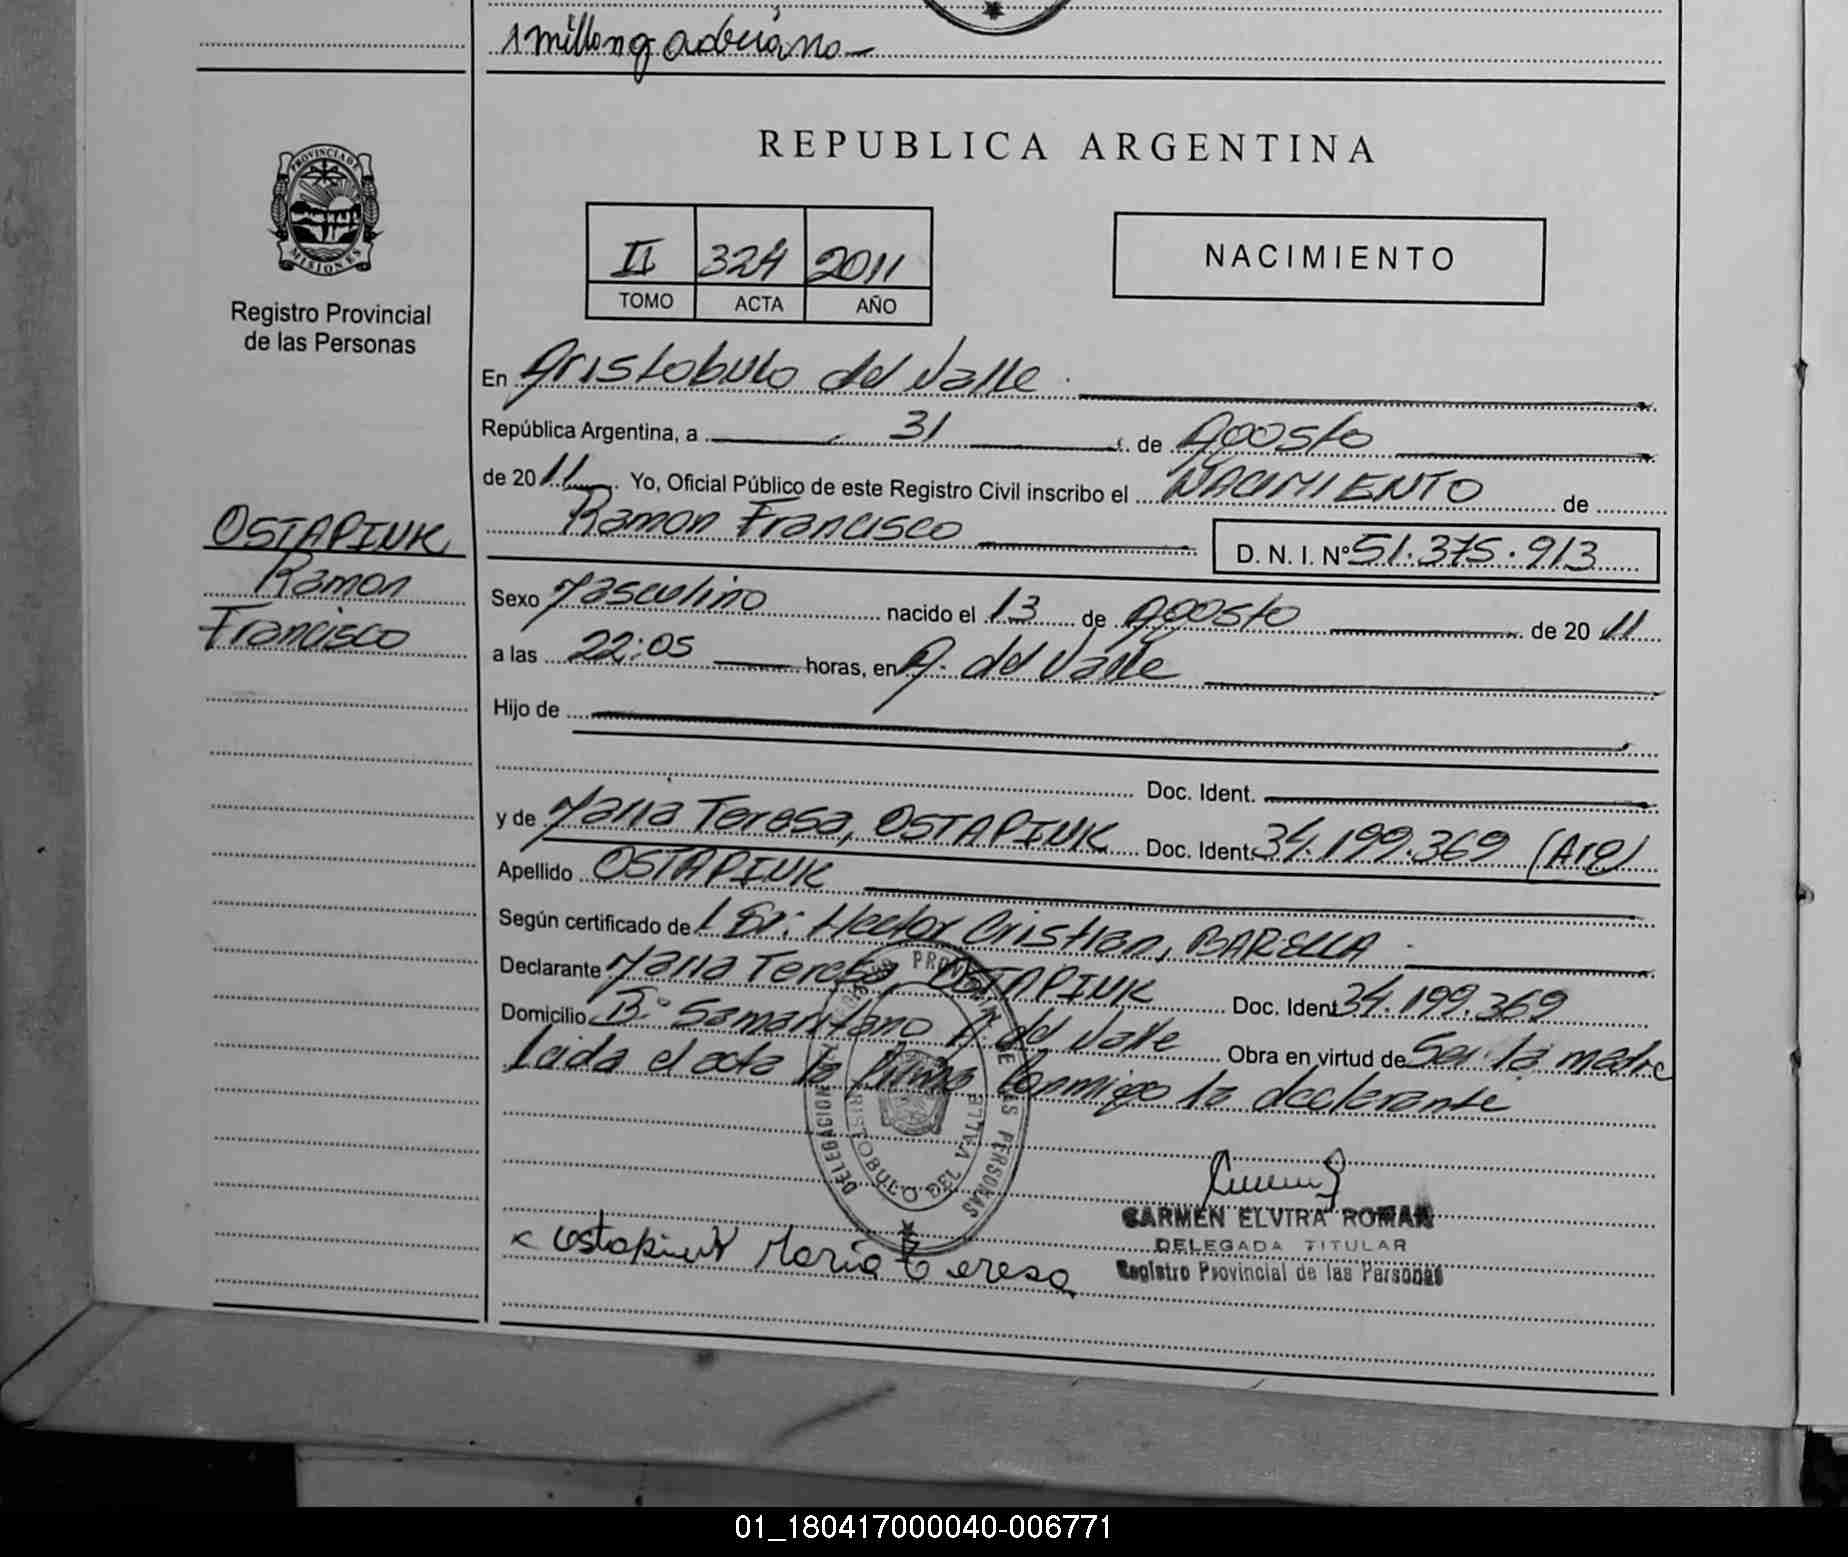 REPUBLICA ARGENTINA
PROVINCIA DE MISIONES
Registro Provincial
de las Personas
II 324 2011
TOMO ACTA AÑO
NACIMIENTO
En Aristobulo del Valle
República Argentina, a 31 de Agosto
de 2011 Yo, Oficial Público de este Registro Civil inscribo el NACIMIENTO de
Ramon Francisco D. N. I. Nº 51.375.913
OSTAPIUK
Ramon
Francisco
Sexo Masculino nacido el 13 de Agosto de 2011
a las 22:05 horas, en A. del Valle
Hijo de
Doc. Ident.
y de Maria Teresa, OSTAPIUK Doc. Ident. 34.199.369 (Arg)
Apellido OSTAPIUK
Según certificado de l Dr. Hector Cristian, BARELLA
Declarante Maria Teresa, OSTAPIUK Doc. Ident 34.199.369
Domicilio Bº Samaritano A. del Valle Obra en virtud de Ser la madre
Leida el acta la firma conmigo la declarante
DELEGACION ARISTOBULO DEL VALLE
REGISTRO PROVINCIAL DE LAS PERSONAS
CARMEN ELVIRA ROMAN
DELEGADA TITULAR
Registro Provincial de las Personas
Ostapiuk María Teresa
01_180417000040-006771